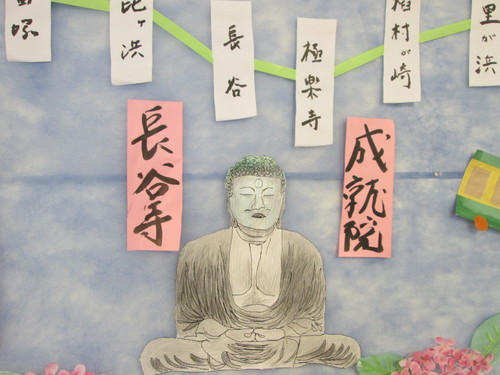 比ヶ浜
長谷
極楽寺
村が崎
里が浜
長谷寺
成就院